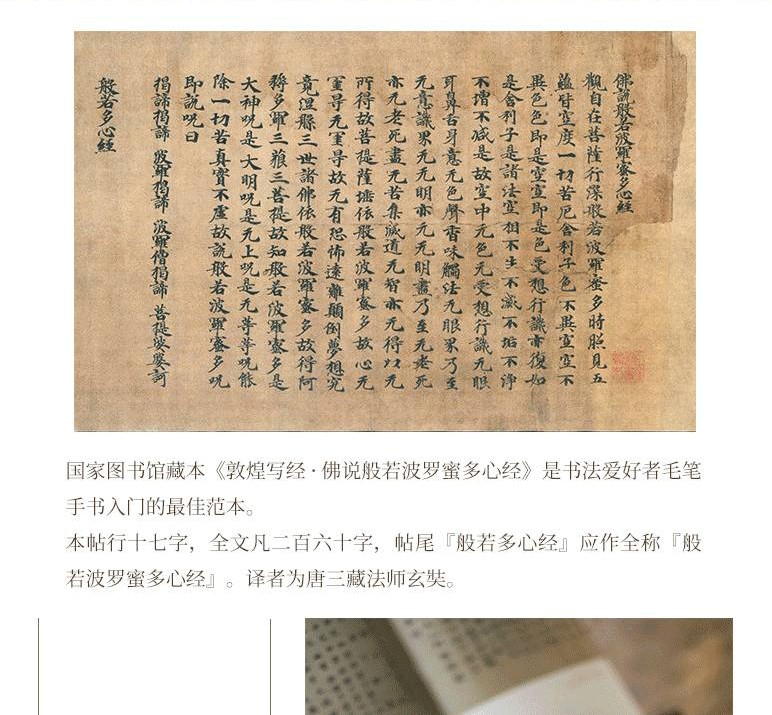 佛說般若波羅蜜多心經
觀自在菩薩行深般若波羅蜜多時照見五
蘊皆空度一切苦厄舍利子色不異空空不
異色色即是空空即是色受想行識亦復如
是舍利子是諸法空相不生不滅不垢不淨
不增不減是故空中无色无受想行識无眼
耳鼻舌身意无色聲香味觸法无眼界乃至
无意識界无无明亦无无明盡乃至无老死
亦无老死盡无苦集滅道无智亦无得以无
所得故菩提薩埵依般若波羅蜜多故心无
罣导无罣导故无有恐怖遠離顛倒夢想究
竟涅槃三世諸佛依般若波羅蜜多故得阿
耨多羅三藐三菩提故知般若波羅蜜多是
大神呪是大明呪是无上呪是无等等呪能
除一切苦真實不虛故說般若波羅蜜多呪
即說呪曰
揭諦揭諦 波羅揭諦 波羅僧揭諦 菩提娑婆訶
般若多心經
国家图书馆藏本《敦煌写经·佛说般若波罗蜜多心经》是书法爱好者毛笔
手书入门的最佳范本。
本帖行十七字，全文凡二百六十字，帖尾『般若多心经』应作全称『般
若波罗蜜多心经』。译者为唐三藏法师玄奘。